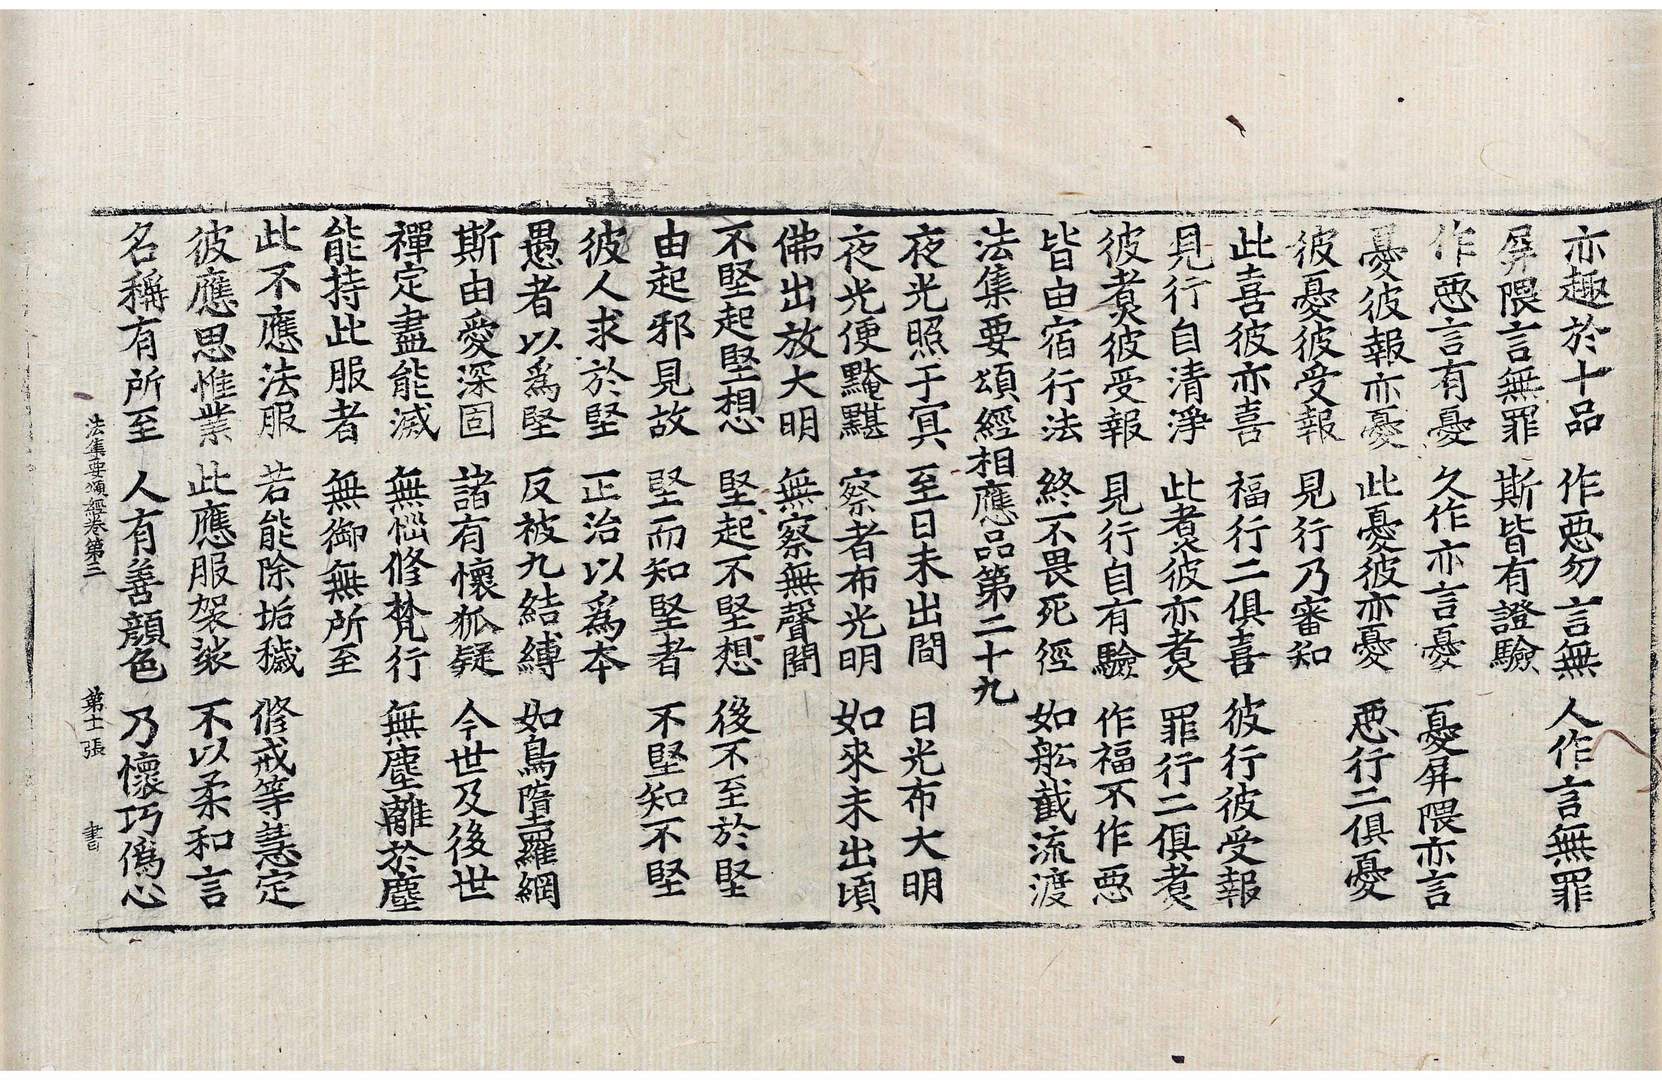 亦趣於十品　作惡勿言無　人作言無罪
屛隈言無罪　斯皆有證驗
作惡言有憂　久作亦言憂　憂屛隈亦言
憂彼報亦憂　此憂彼亦憂　惡行二俱憂
彼憂彼受報　見行乃審知
此喜彼亦喜　福行二俱喜　彼行彼受報
見行自清淨　此煑彼亦煑　罪行二俱煑
彼煑彼受報　見行自有驗　作福不作惡
皆由宿行法　終不畏死徑　如舩截流渡
法集要頌經相應品第二十九
夜光照于冥　至日未出間　日光布大明
夜光便黤黮　察者布光明　如來未出頃
佛出放大明　無察無聲聞
不堅起堅想　堅起不堅想　後不至於堅
由起邪見故　堅而知堅者　不堅知不堅
彼人求於堅　正治以爲本
愚者以爲堅　反被九結縛　如鳥墮羅網
斯由愛深固　諸有懷狐疑　今世及後世
禪定盡能滅　無惱修梵行　無塵離於塵
能持此服者　無御無所至
此不應法服　若能除垢穢　修戒等慧定
彼應思惟業　此應服袈裟　不以柔和言
名稱有所至　人有善顔色　乃懷巧僞心
法集要頌經卷第三　第十二張　書